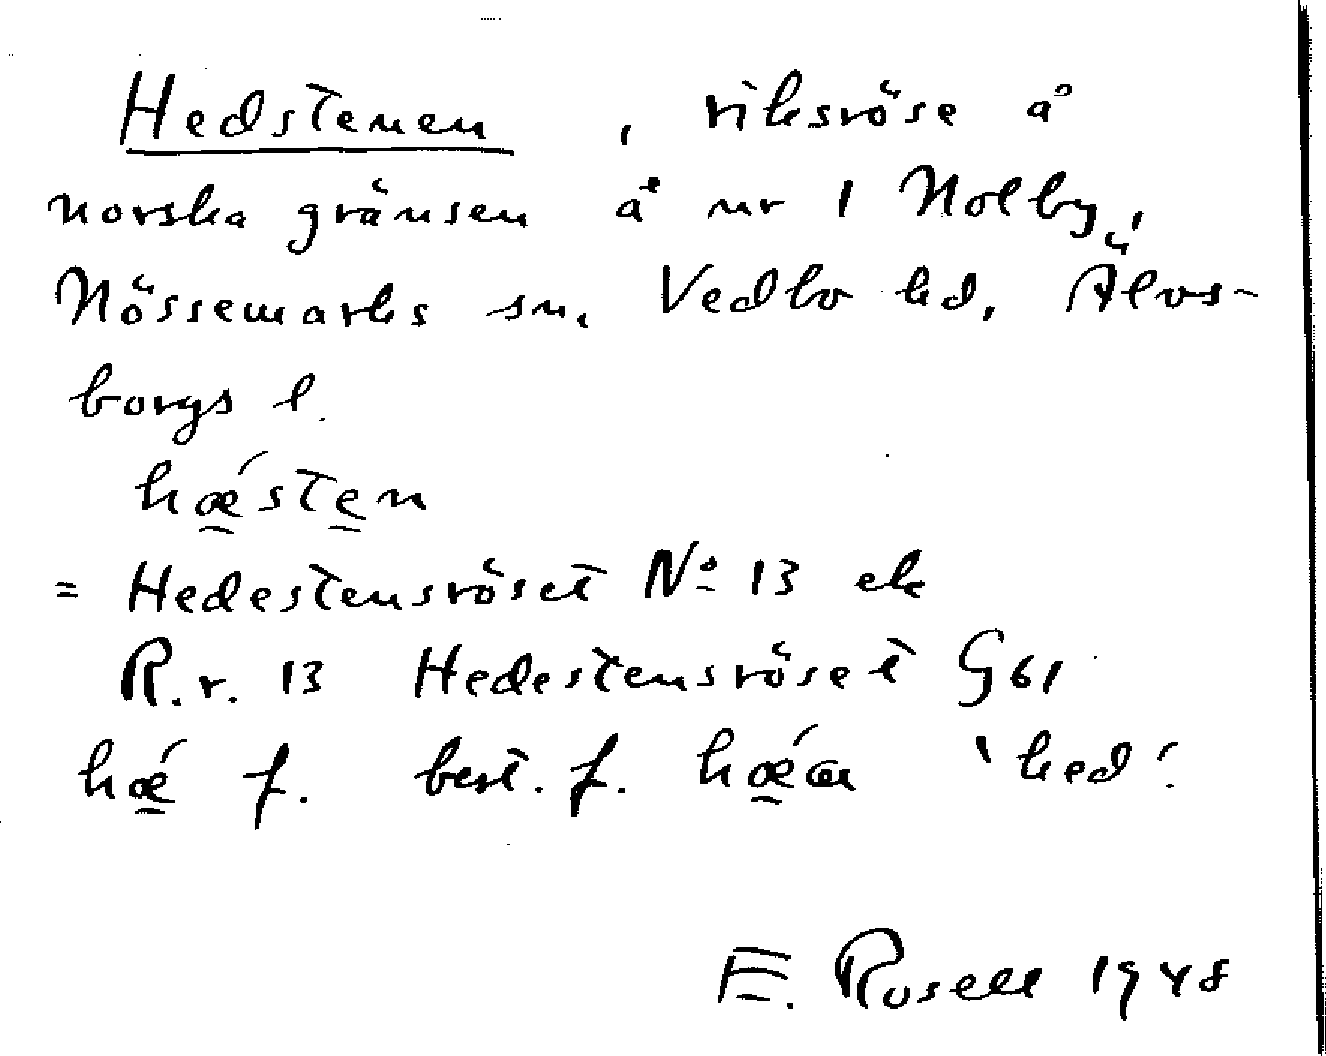 Hedstenen, riksröse å
norska gränsen å nr 1 Nolby,
Nössemarks sn, Vedbo hd, Älvs-
borgs l.
hǽsten
= Hedestensröset No 13 ek
R.r. 13 Hedestensröset G61
hǽ f. best. f. hǽa 'hed'.
E. Rosell 1948